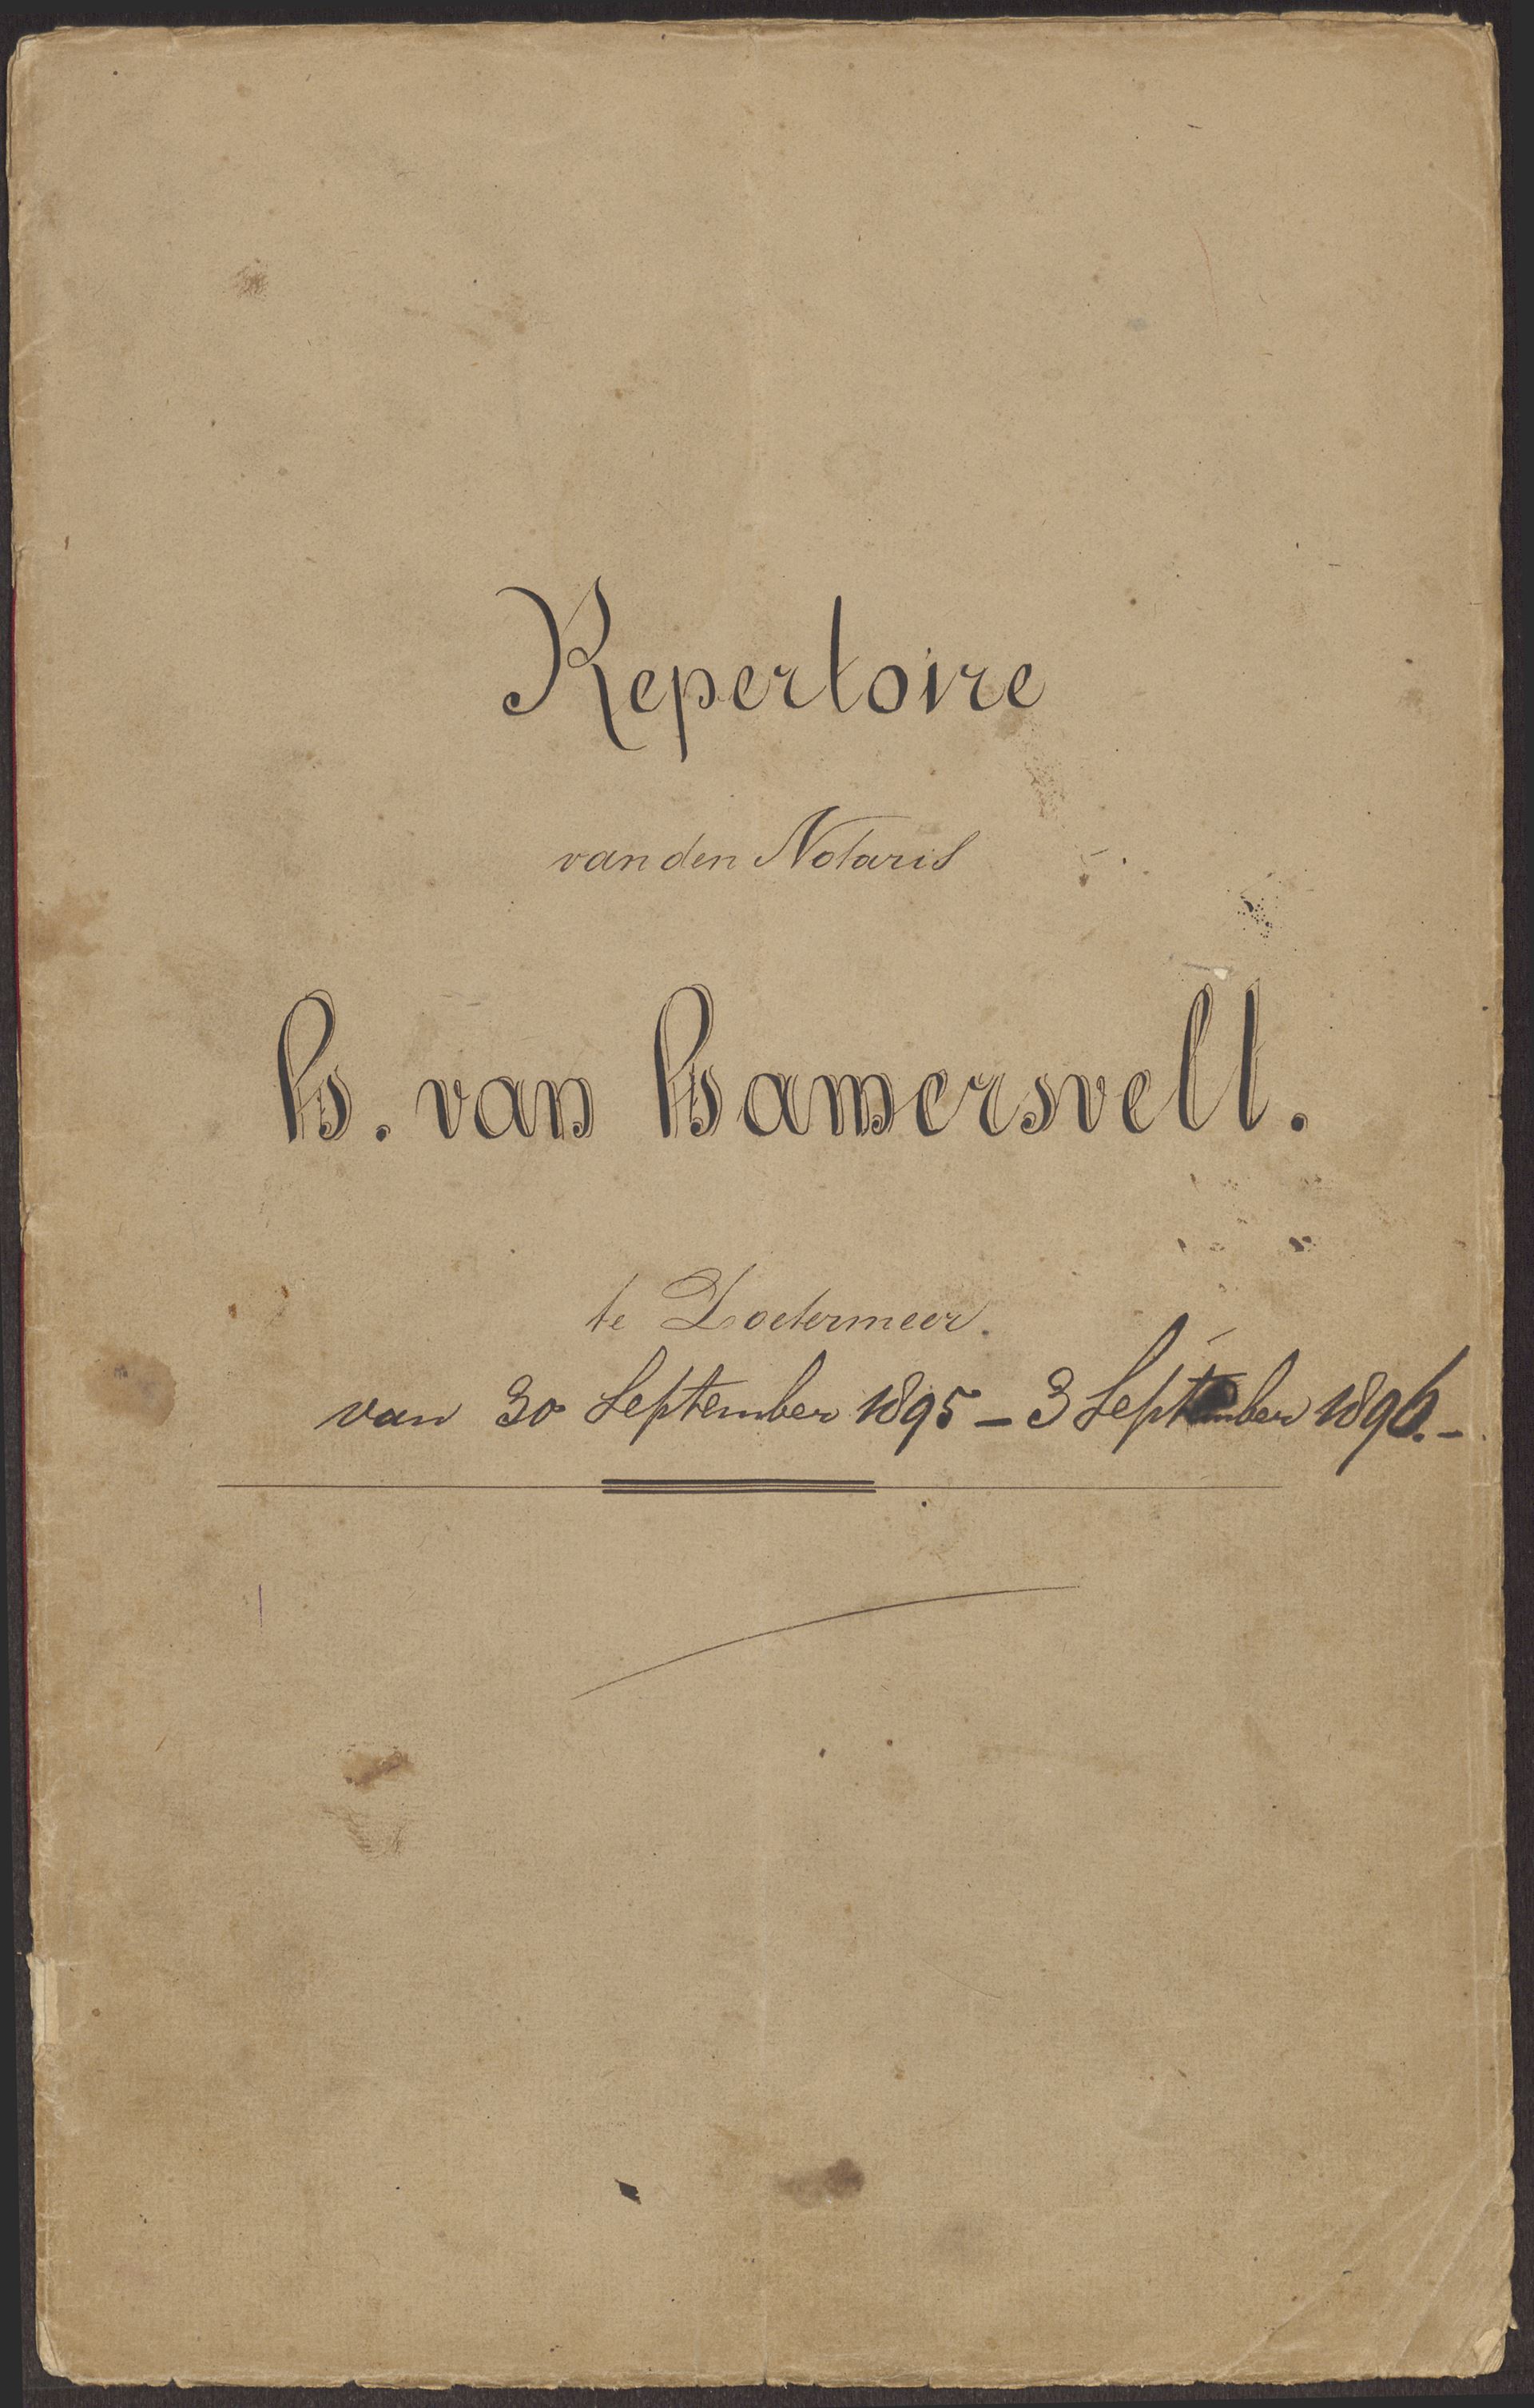 Repertoire
van den Notaris
H. van Hamersvelt.
te Zoetermeer.
van 30 September 1895 - 3 September 1896.-